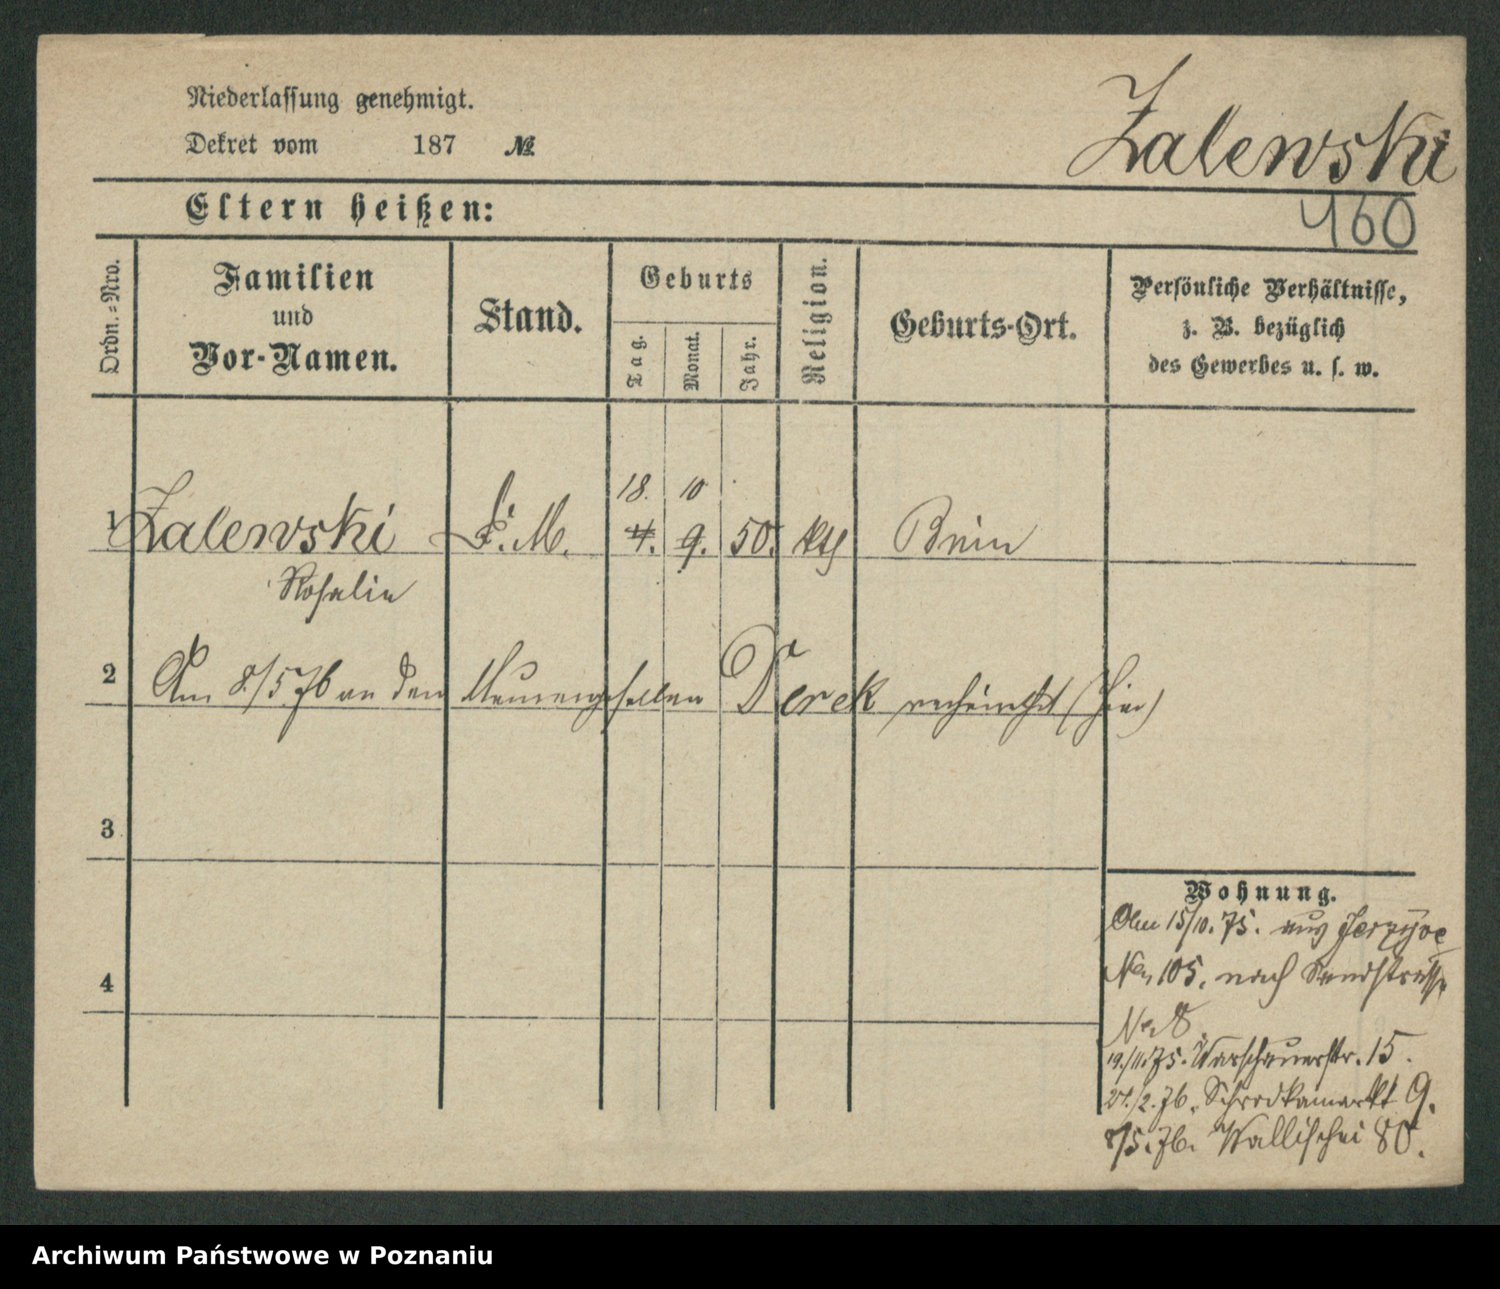 Niederlassung genehmigt.
Dekret vom 187 №
Zalewski
460
Eltern heißen:
Ordn.-Nro.
Familien
und
Vor-Namen.
Stand.
Geburts
Tag.
Monat.
Jahr.
Religion.
Geburts-Ort.
Persönliche Verhältnisse,
z. B. bezüglich
des Gewerbes u. s. w.
18. 10
1 Zalewski D. M. 4. 9. 50. kth Bnin
Rosalie
2 Am 8/5 76 an den Maurergesellen Derek verheirathet (hier)
3
4
Wohnung.
Am 15/10. 75. aus Jerzyce
No 105. nach Sandstrasse
No 8
19./11. 75. Warschauerstr. 15.
21./2. 76. Schrodkamarkt 9.
8/5. 76. Wallischei 80.
Archiwum Państwowe w Poznaniu